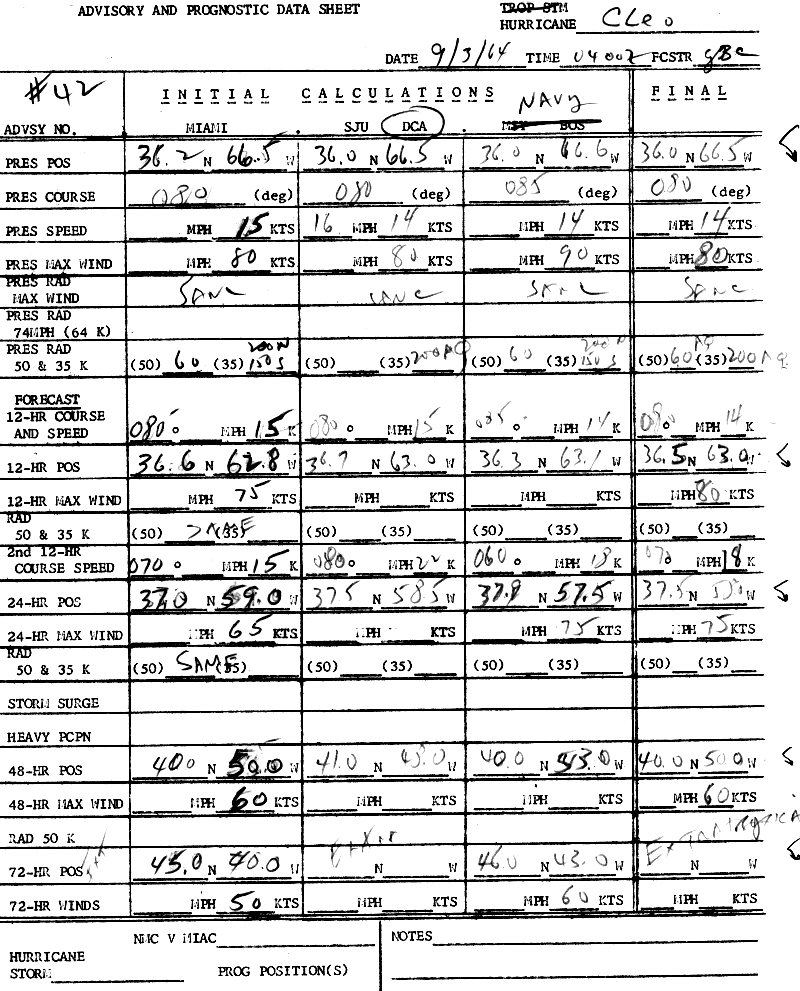 ADVISORY AND PROGNOSTIC DATA SHEET TROP STM
HURRICANE CLeo
DATE 9/3/64 TIME 0400Z FCSTR
#42 INITIAL CALCULATIONS FINAL
NAVY
ADVSY NO. MIAMI SJU DCA BOS
PRES POS 36.2 N 66.5 W 36.0 N 66.5 W 36.0 N 66.6 W 36.0 N 66.5 W
PRES COURSE 080 (deg) 080 (deg) 085 (deg) 080 (deg)
PRES SPEED MPH 15 KTS 16 MPH 14 KTS MPH 14 KTS MPH 14 KTS
PRES MAX WIND MPH 80 KTS MPH 80 KTS MPH 90 KTS MPH 80 KTS
PRES RAD
MAX WIND SAME SAME SAME SAME
PRES RAD
74MPH (64 K)
PRES RAD 200N 200N
50 & 35 K (50) 60 (35) 150 S (50) (35) 200 (50) 60 (35) 150 S (50) 60 (35) 200
FORECAST
12-HR COURSE
AND SPEED 080° MPH 15 K 080° MPH 15 K 085° MPH 14 K 080° MPH 14 K
12-HR POS 36.6 N 62.8 W 36.7 N 63.0 W 36.3 N 63.1 W 36.5 N 63.0 W
12-HR MAX WIND MPH 75 KTS MPH KTS MPH KTS MPH 80 KTS
RAD
50 & 35 K (50) SAME (35) (50) (35) (50) (35) (50) (35)
2nd 12-HR
COURSE SPEED 070° MPH 15 K 080° MPH 22 K 060° MPH 18 K 070 MPH 18 K
24-HR POS 37.0 N 59.0 W 37.5 N 58.5 W 37.9 N 57.5 W 37.5 N W
24-HR MAX WIND MPH 65 KTS MPH KTS MPH 75 KTS MPH 75 KTS
RAD
50 & 35 K (50) SAME (35) (50) (35) (50) (35) (50) (35)
STORM SURGE
HEAVY PCPN
48-HR POS 40.0 N 50.0 W 41.0 N W 40.0 N 53.0 W 40.0 N 50.0 W
48-HR MAX WIND MPH 60 KTS MPH KTS MPH KTS MPH 60 KTS
RAD 50 K EXTRATROPICAL
72-HR POS 45.0 N 40.0 W N W 46.0 N 43.0 W N W
72-HR WINDS MPH 50 KTS MPH KTS MPH 60 KTS MPH KTS
NMC V MIAC NOTES
HURRICANE
STORM PROG POSITION(S)